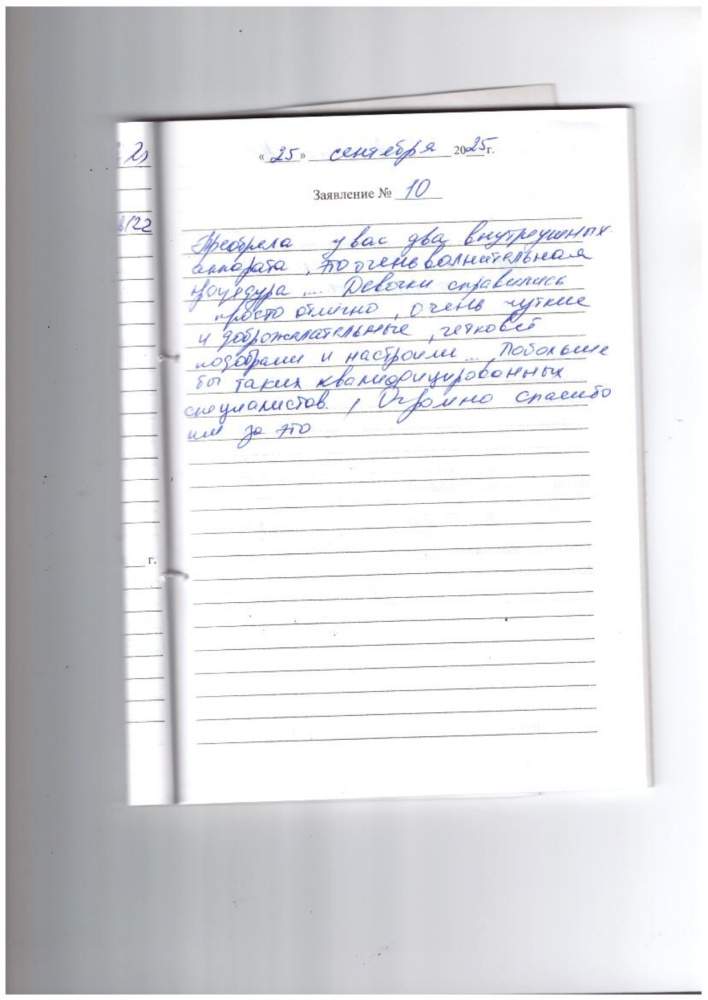 2,
« 25 » сентября 2025 г.
Заявление № 10
122
Преобрела у вас два внутреушных
аппарата, это очень волнительная
процедура .... Девочки справились
просто отлично, очень чуткие
и доброжелательные, четко всё
подобрали и настроили ... Побольше
бы таких квалифицированных
специалистов. , Огромно спасибо
им за это
г.